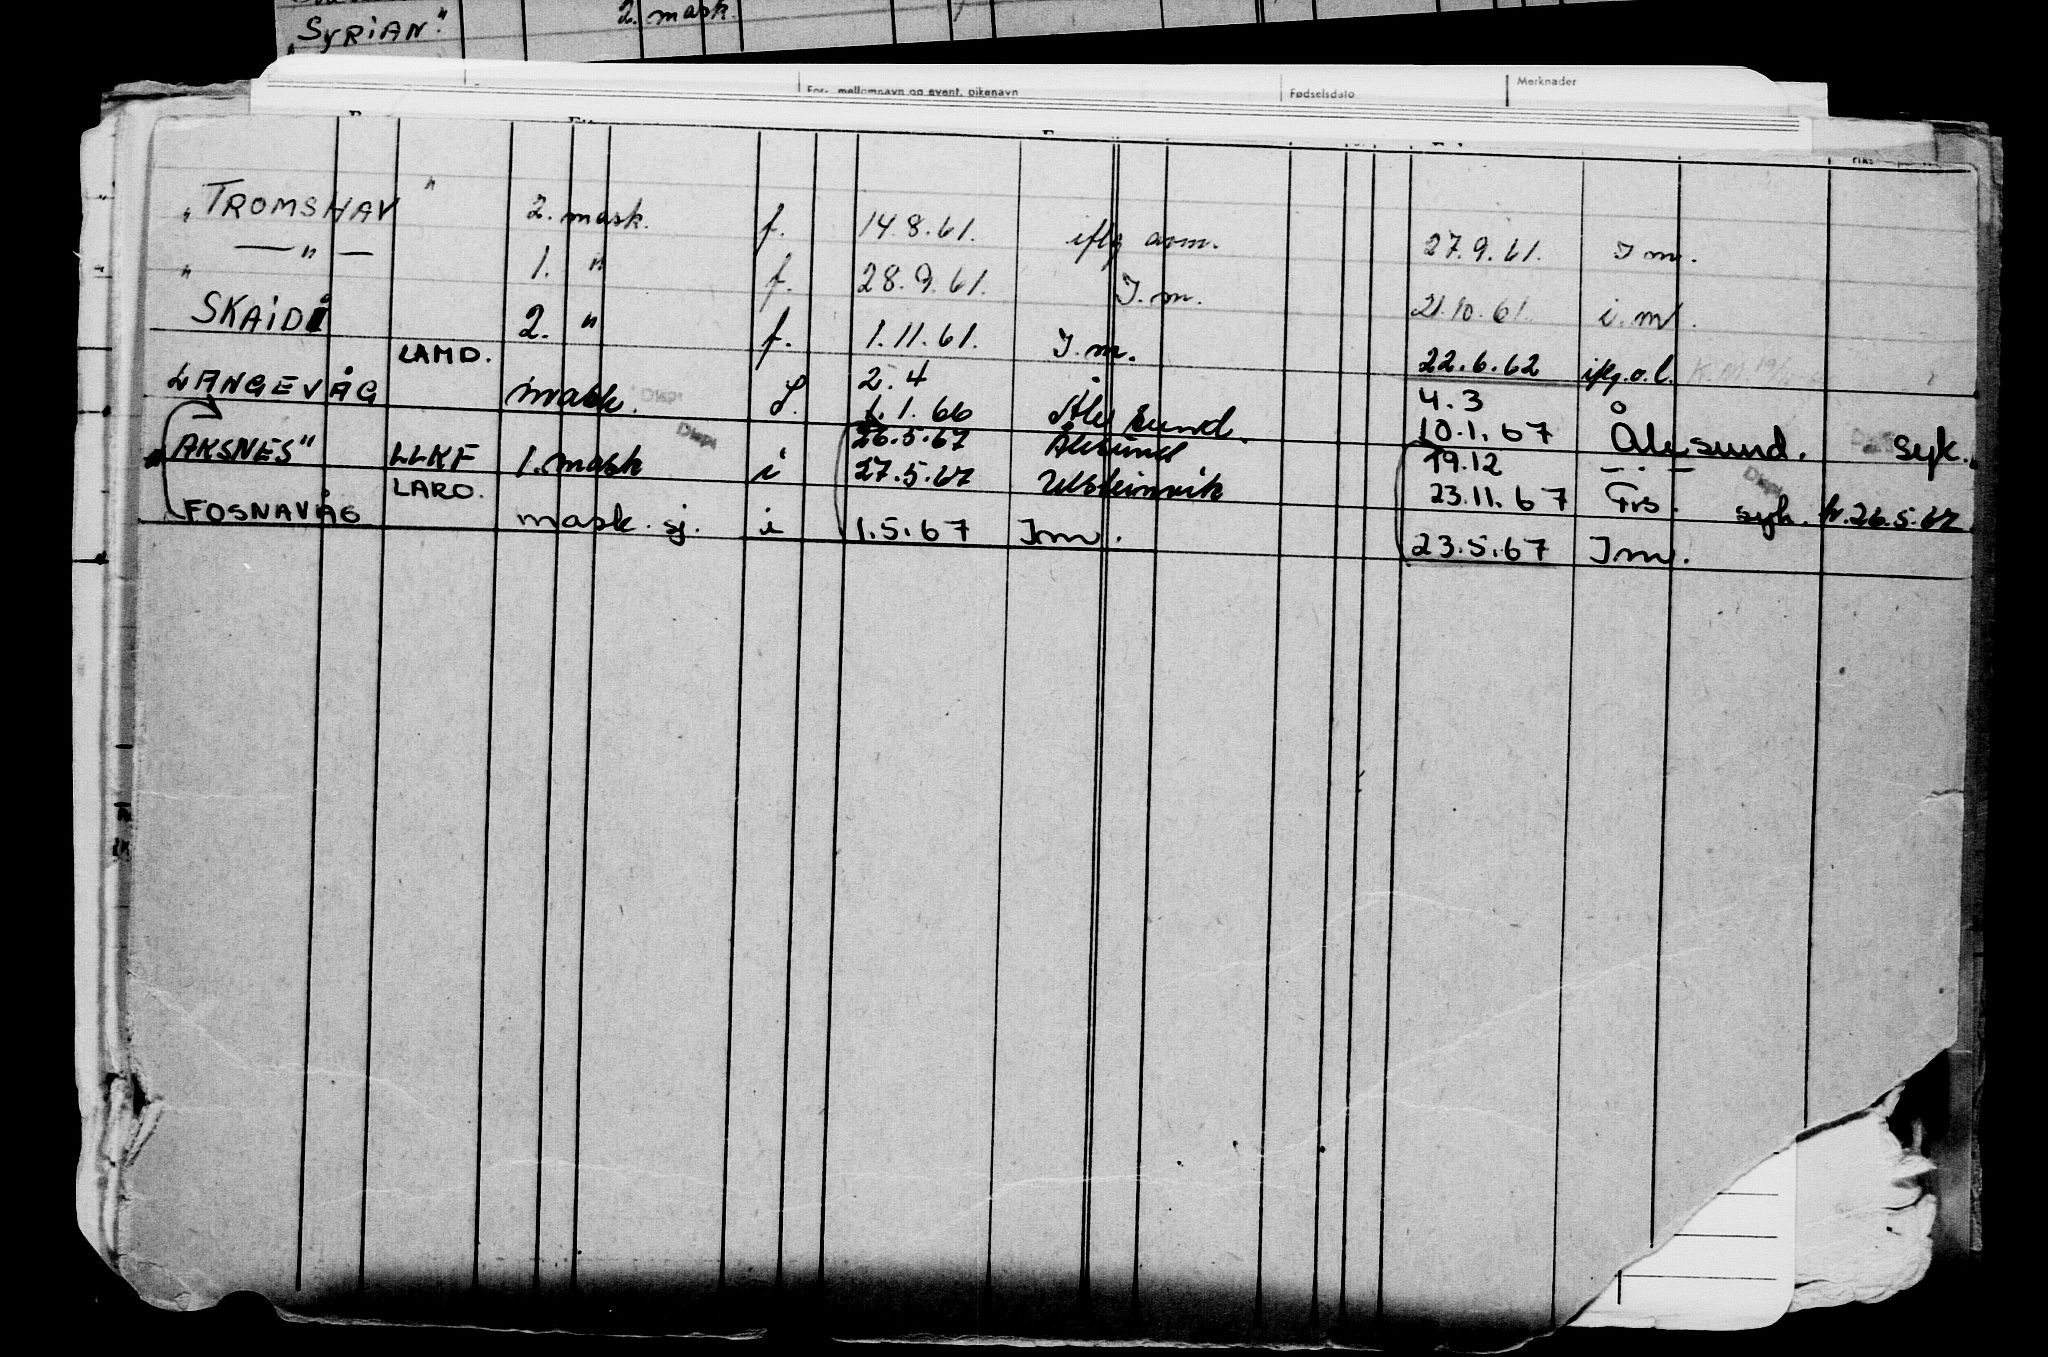 „SYRIAN" 2. mask.
For-, mellomnavn og event. pikenavn Fødselsdato Merknader
„TROMSHAV" 2. mask. f. 14.8.61. iflg 27.9.61. I m.
„ — " — 1. " f. 28.9.61. I.m. 21.10.61. i.m.
SKAIDI 2. " f. 1.11.61. I.m. 22.6.62 iflg.o.l.
LAMD. 2.4 4.3
LANGEVÅG mask. 1.1.66 Ålesund. 10.1.67 Ålesund. syk.
26.5.67 Ålesund 19.12 — " —
AKSNES" LLKF 1. mask i 27.5.67 Ulsteinvik 23.11.67 syk. fr. 26.5.67
LARO.
FOSNAVÅG mask. sj. i 1.5.67 I.m. 23.5.67 I.m.